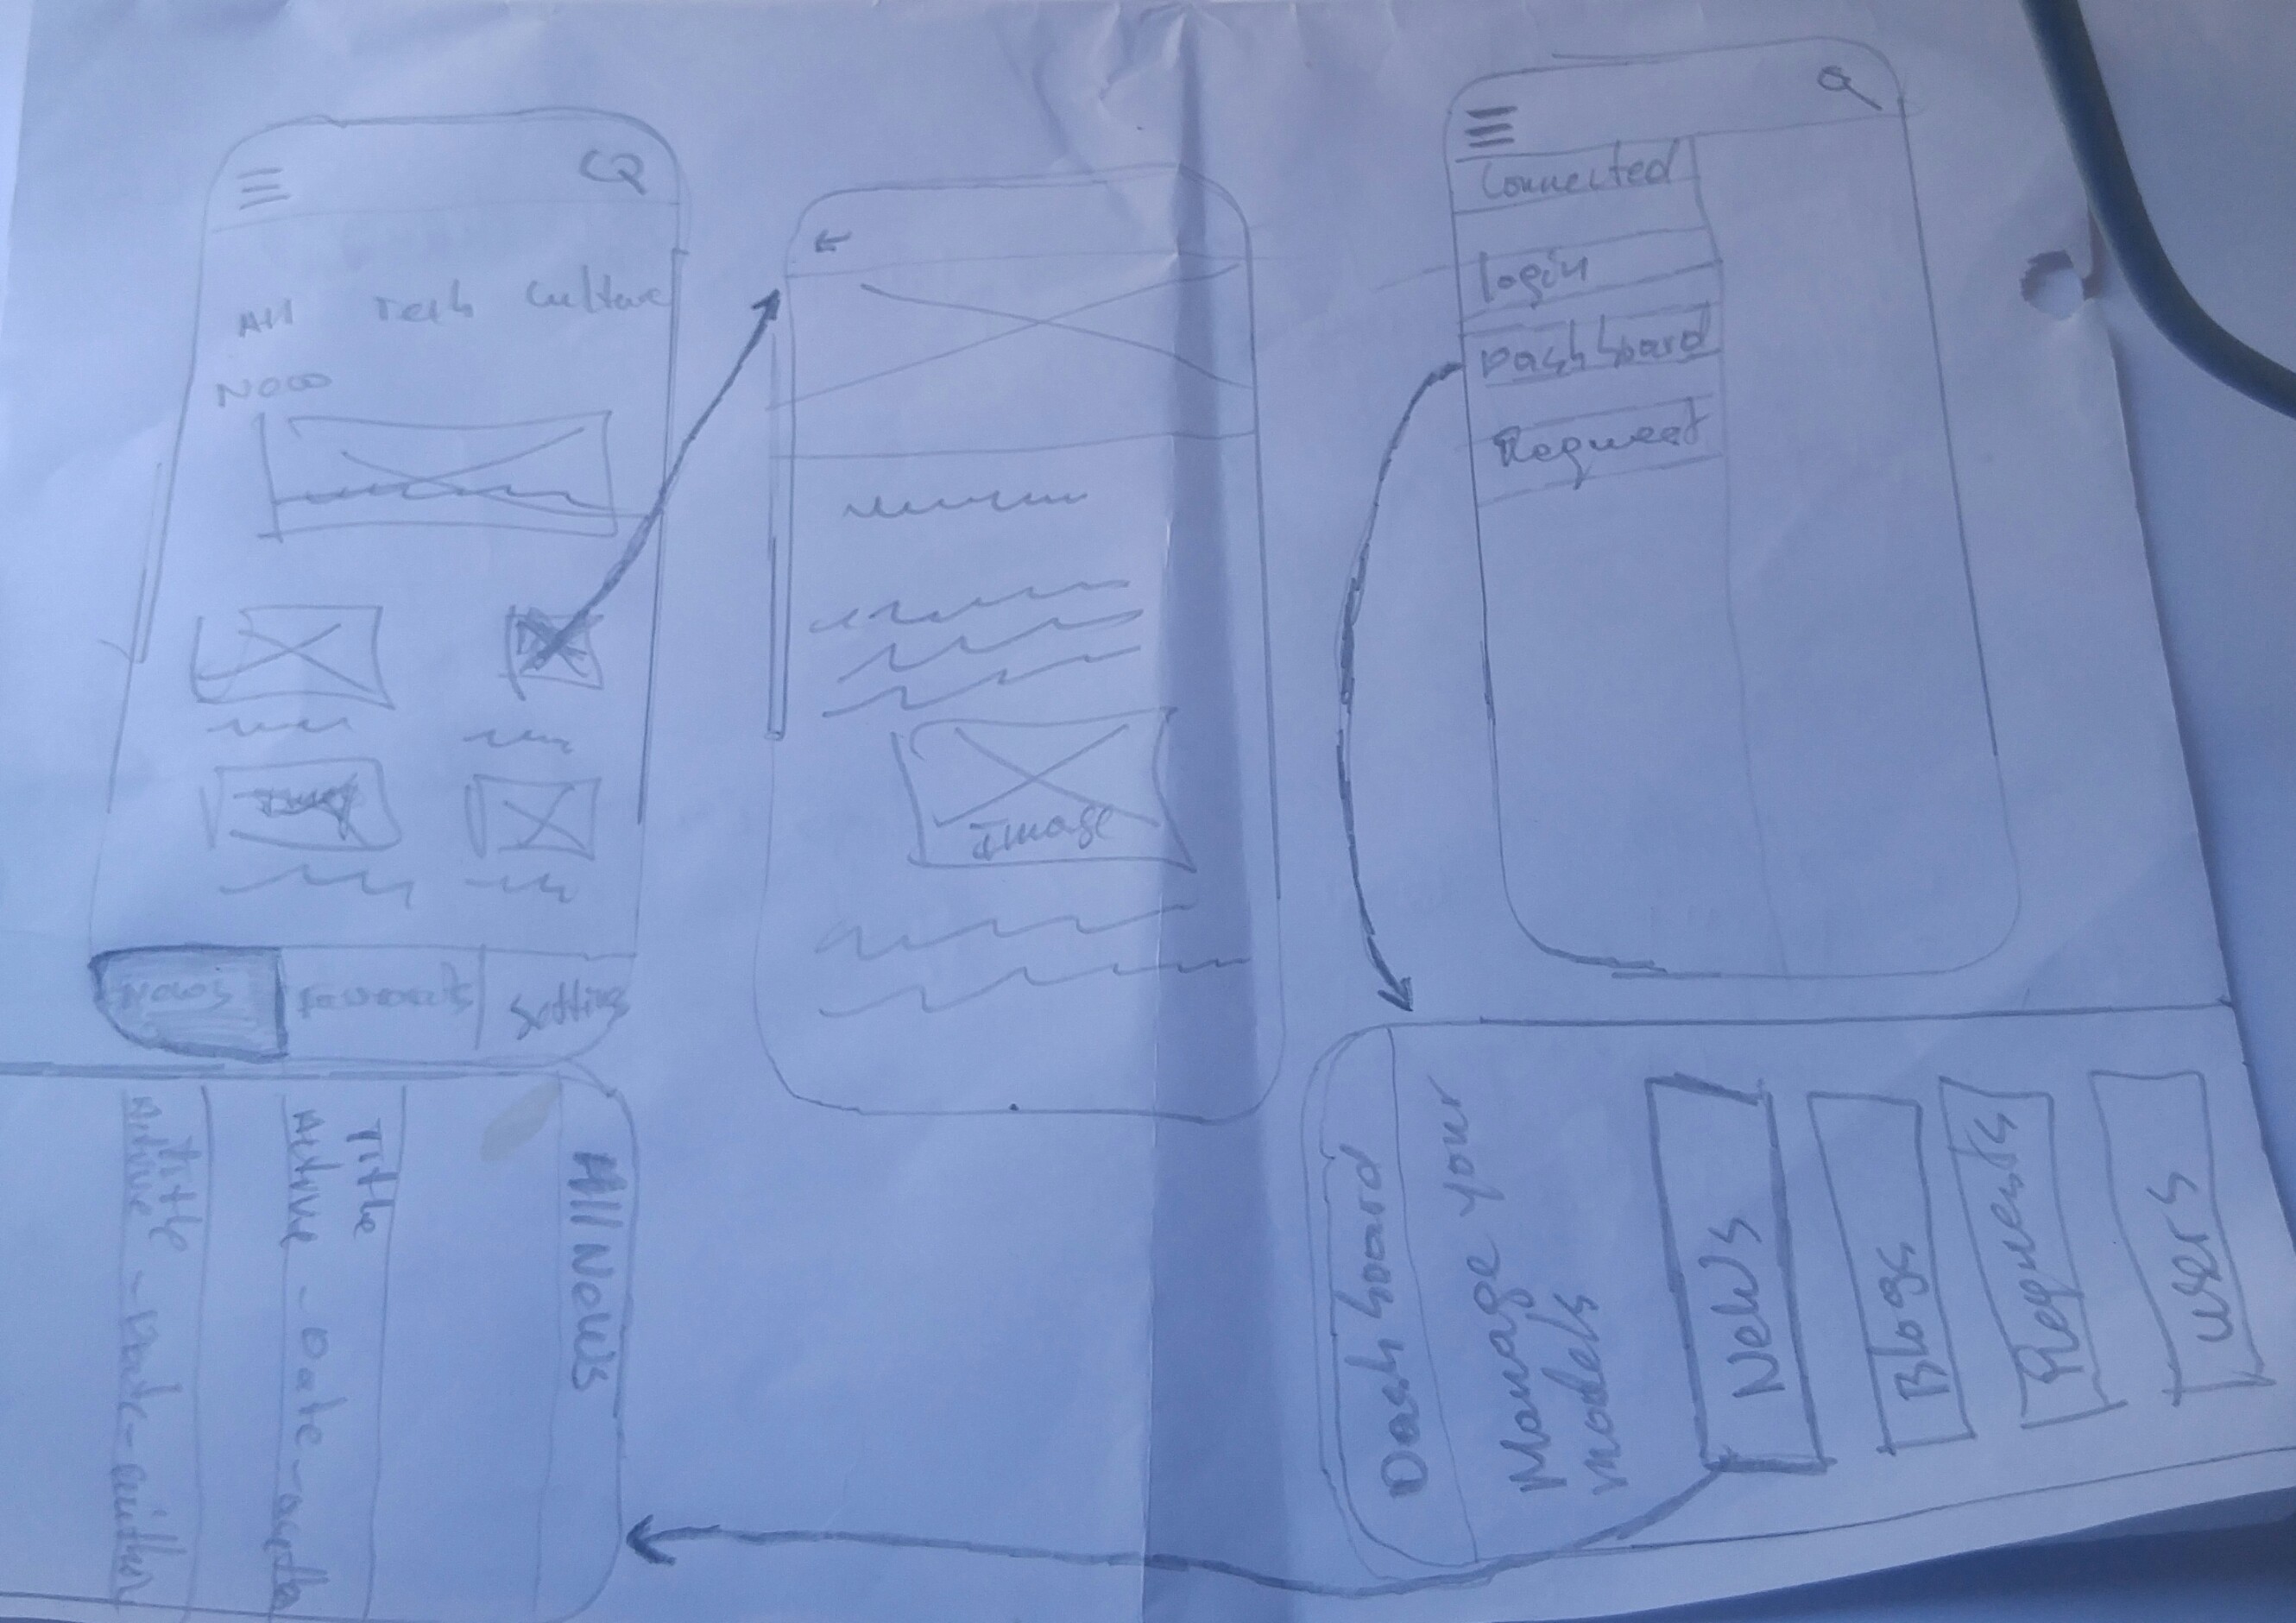 All Tech Culture
New
News Favourits Setting
Image
Connected
login
Dashboard
Request
Dashboard
Manage your
models
News
Blogs
Requests
Users
All News
Title
Active - Date - author
Title
Active - Date - author